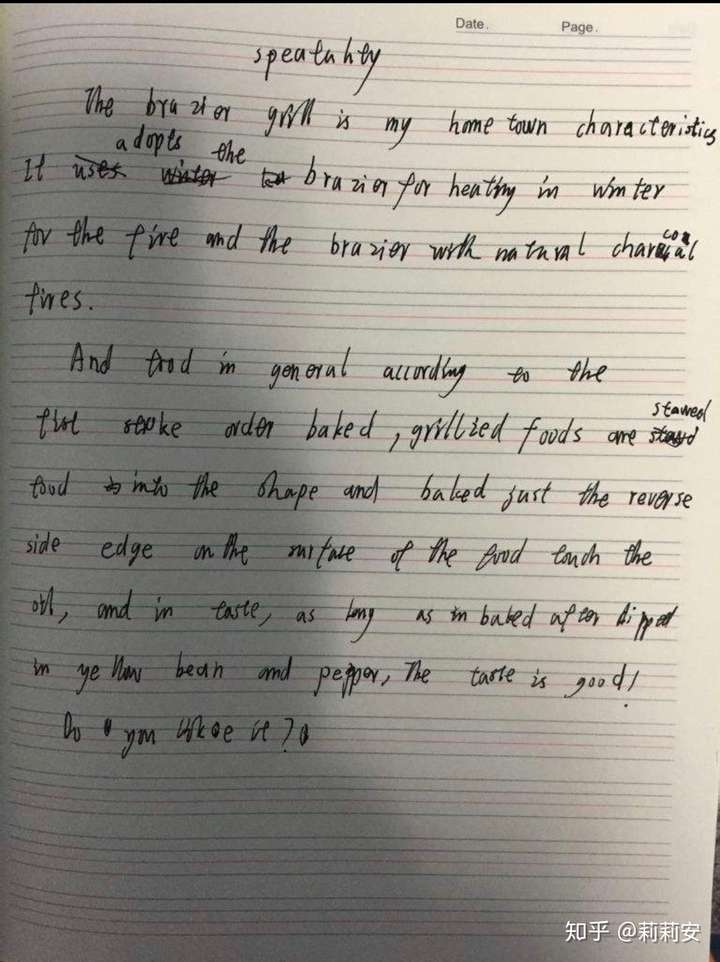 Date. Page.
speatuhty
The brazier grill is my home town characteristics
adopts the
It uses winter brazier for heating in winter
for the fire and the brazier with natural charcoal
fires.
And food in general according to the
first stroke order baked, grillied foods are stawed
food is into the shape and baked just the reverse
side edge on the surface of the food touch the
oil, and in taste, as long as in baked after dipped
in yellow bean and pepper, The taste is good!
Do you likee it?
知乎 @莉莉安